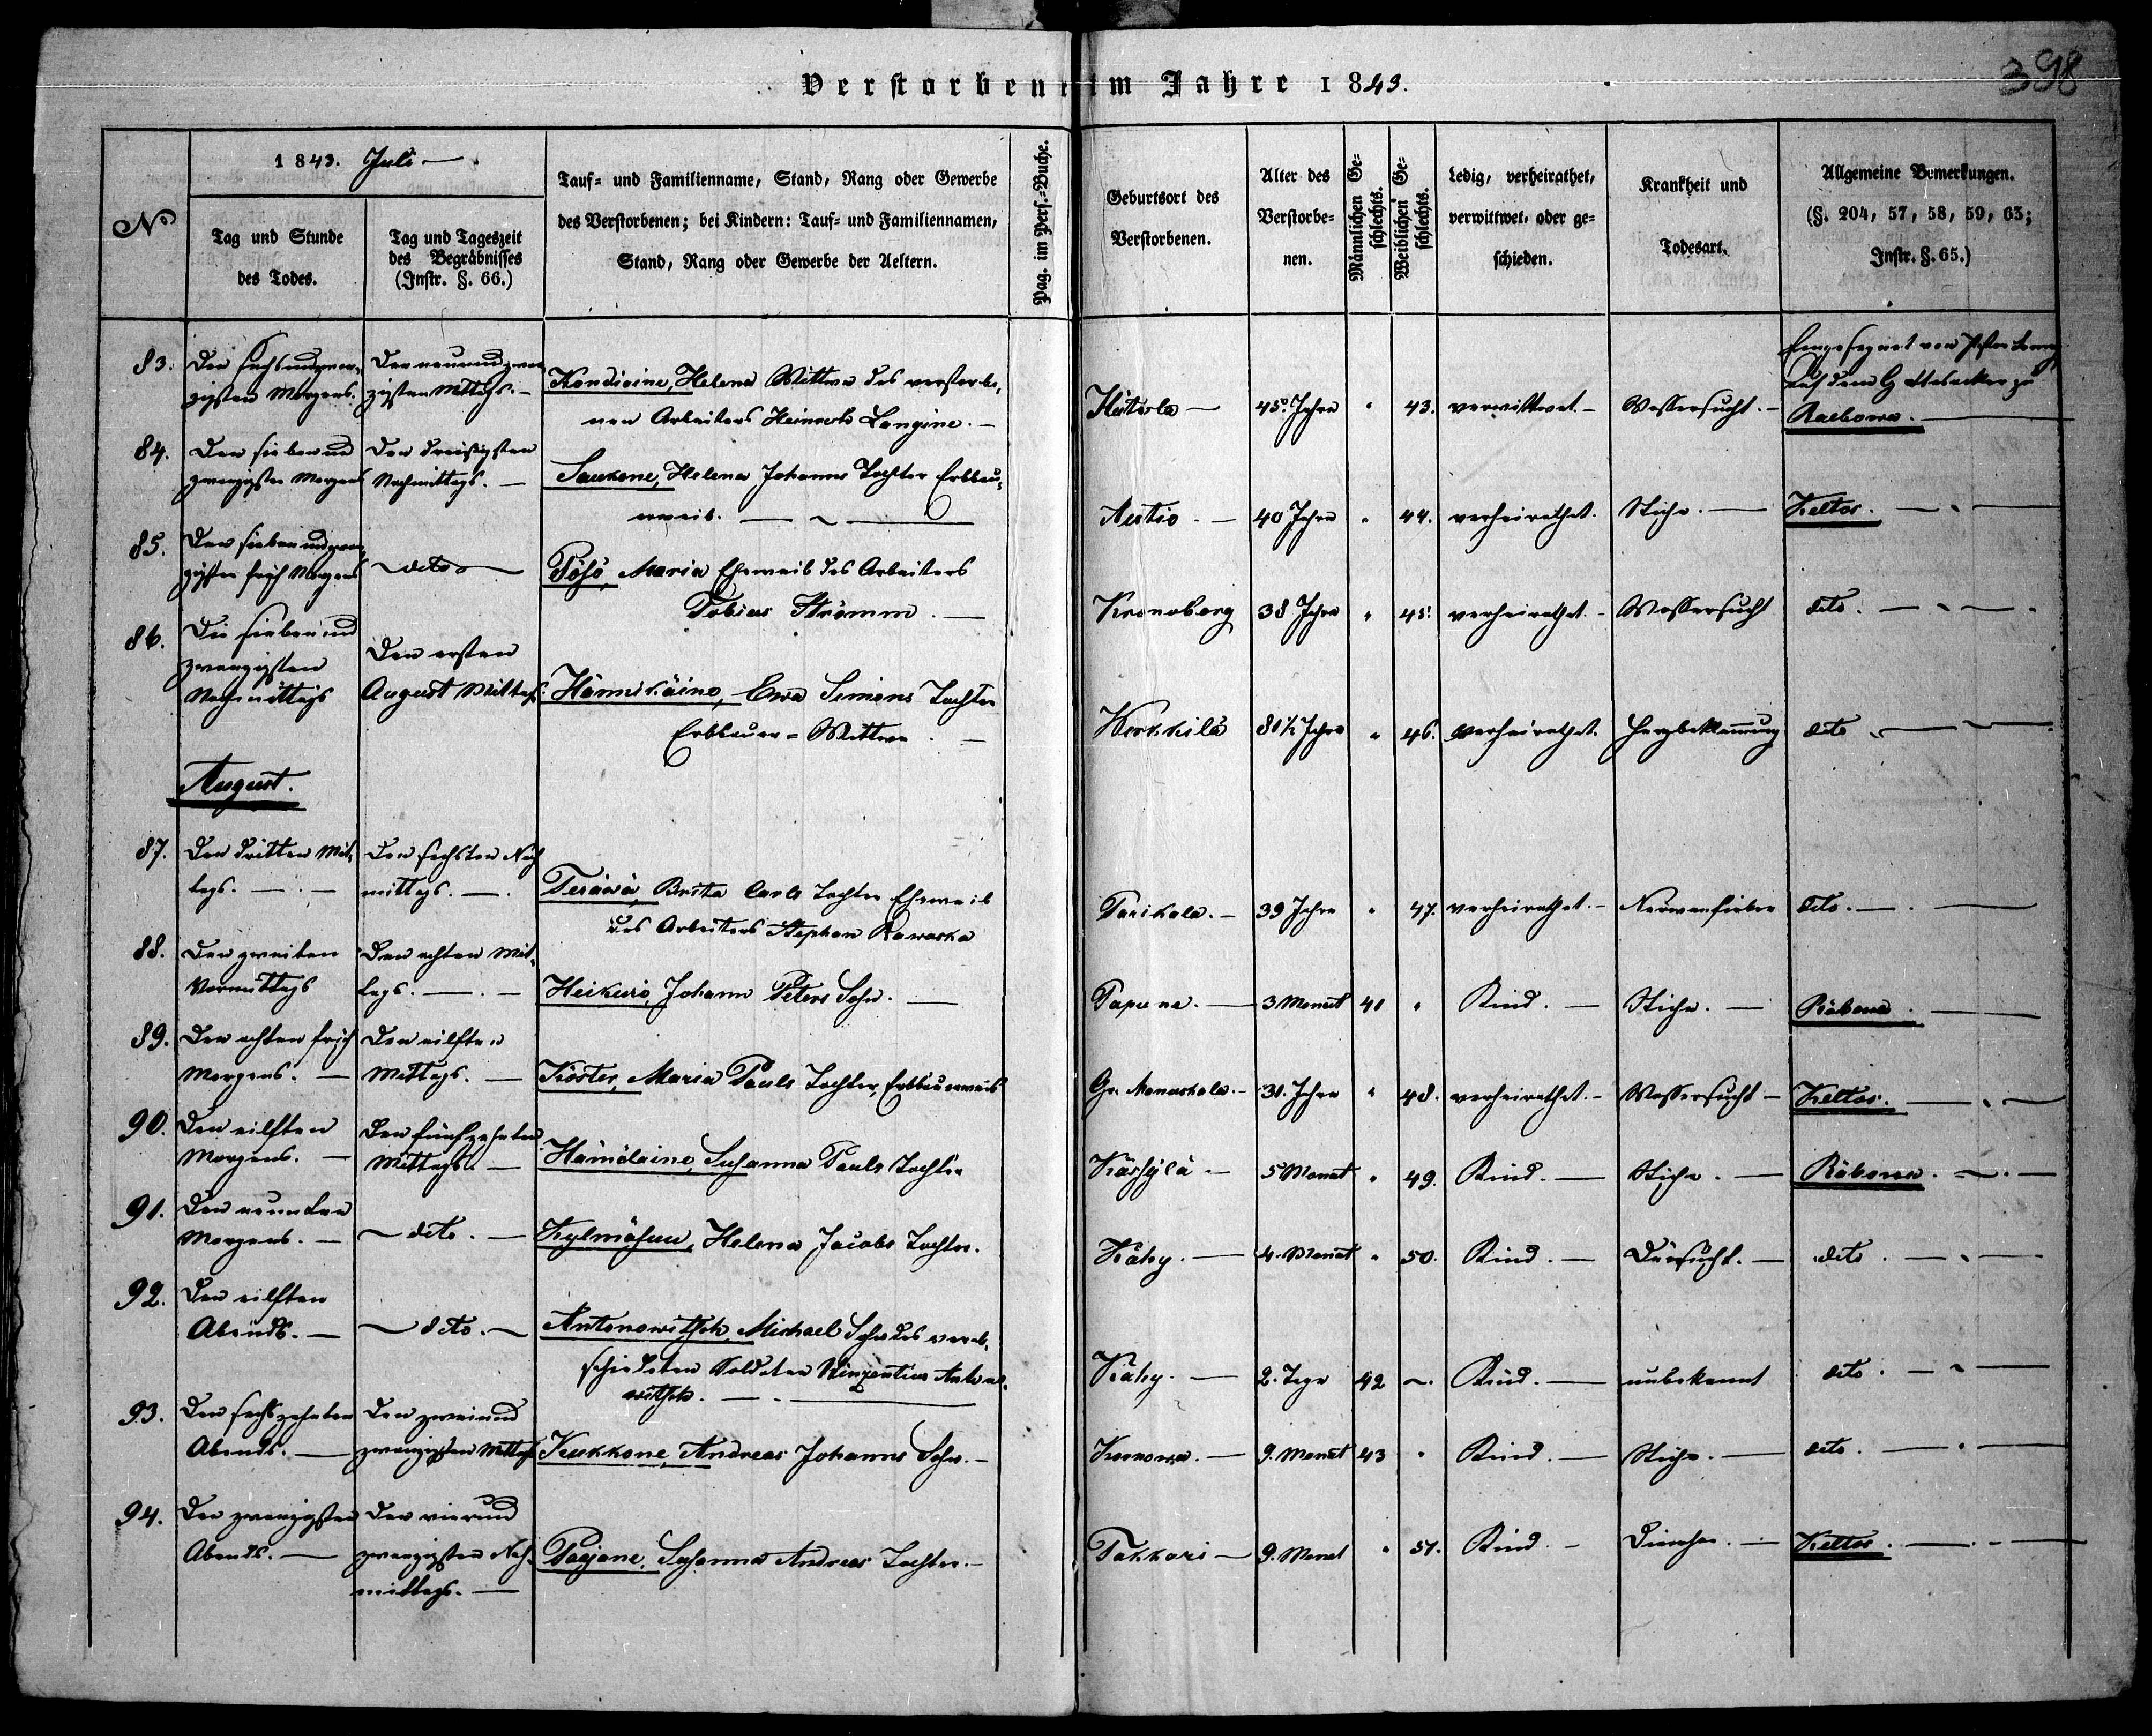 398
Verstorbene im Jahre 1843.
No
1843. Juli
Tag und Stunde
des Todes.
Tag und Tageszeit
des Begräbnisses
(Instr. §. 66.)
Tauf- und Familienname, Stand, Rang oder Gewerbe
des Verstorbenen; bei Kindern: Tauf- und Familiennamen,
Stand, Rang oder Gewerbe der Aeltern.
Pag. im Pers.-Buche.
Geburtsort des
Verstorbenen.
Alter des
Verstorbe-
nen.
Männlichen Ge-
schlechts.
Weiblichen Ge-
schlechts.
Ledig, verheirathet,
verwittwet, oder ge-
schieden.
Krankheit und
Todesart.
Allgemeine Bemerkungen.
(§. 204, 57, 58, 59, 63;
Instr. §. 65.)
83. Den sechsundzwan-
zigsten Morgens.
Den neunundzwan-
zigsten Mittags.
Kondiaine, Helena Wittwe des verstorbe-
nen Arbeiters Heinrich Langine.
45. Jahre " 43. verwittwet. Wassersucht.
Eingesegnet von
auf dem Gottesacker zu
Raebowa.
84. Den siebenund
zwanzigsten Morgens
Den dreißigsten
Nachmittags.
Saukene, Helena Johanns Tochter Erbbau-
weib.
Autio. 40 Jahre " 44. verheirathet. Stiche. Keltos.
85. Den siebenundzwan-
zigsten früh Morgens
dito
Pösö, Maria Eheweib des Arbeiters
Tobias Strömm.
Kronoberg 38 Jahre " 45. verheirathet. Wassersucht dito.
86. Den siebenund
zwanzigsten
Nachmittags
Den ersten
August Mittags.
Hännikäine, Ewa Simons Tochter
Erbbauer-Wittwe
Kerkkilä 81½ Jahre " 46. verheirathet. Herzbeklemmung dito
August.
87. Den dritten Mit-
tags.
Den sechsten Nach
mittags.
Teräwä, Brita Carls Tochter Eheweib
des Arbeiters Stephan Rawaska
Parikala. 39 Jahre " 47. verheirathet. Nervenfieber dito.
88. Den zweiten
Vormittags
Den achten Mit-
tags.
Heikurä, Johann Peters Sohn.
Papuna. 3 Monat 41 " Kind. Stiche. Räbowa
89. Den achten früh
Morgens.
Den eilften
Mittags.
Köster, Maria Pauls Tochter, Erbbauernweib
Gr. Manuskala. 31. Jahre " 48. verheirathet. Wassersucht Keltos.
90. Den eilften
Morgens.
Den fünfzehnten
Mittags.
Hämäläine, Susanna Pauls Tochter
5 Monat " 49. Kind. Stiche. Räbowa.
91. Den neunten
Morgens.
dito.
Kylmäsuu, Helena Jacobs Tochter.
Käky. 4. Monat " 50. Kind. Dürsucht. dito
92. Den eilften
Abends.
dito.
Antonowitsch, Michael Sohn des verab-
schiedeten Soldaten Vinzentius Antono-
witsch.
Käky. 2. Tage 42 Kind. unbekannt dito.
93. Den sechszehnten
Abends.
Den zweiund
zwanzigsten Mittags
Kukkone, Andreas Johanns Sohn.
9. Monat 43 " Kind. Stiche. dito.
94. Den zwanzigsten
Abends.
Den vierund
zwanzigsten Nach-
mittags.
Pajane, Susanna Andreas Tochter.
Takkari 9. Monat " 51. Kind. Keltos.